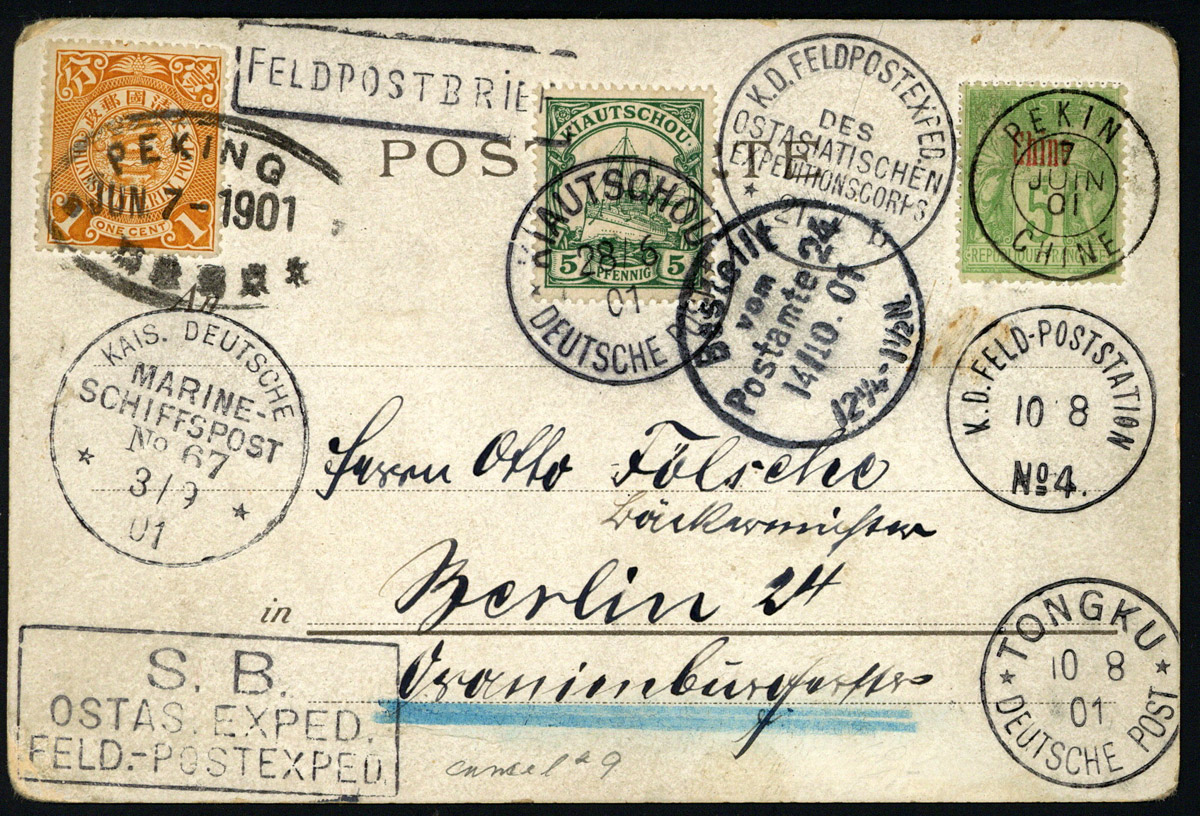 FELDPOSTBRIEF
POST
TE
分 壹
政郵國清大
1 ONE CENT 1
PEKING
JUN 7-1901
KIAUTSCHOU
5 PFENNIG 5
KIAUTSCHOU
28/6
01
DEUTSCHE POST
K.D. FELDPOSTEXPED.
DES
OSTASIATISCHEN
EXPEDITIONSCORPS
b
Chine
5
REPUBLIQUE FRANÇAISE
PEKIN
7
JUIN
01
CHINE
Bestellt
vom
Postamte 24
14/10. 01
12¼-1½N.
An
KAIS. DEUTSCHE
MARINE-
SCHIFFSPOST
No 67
3/9
01
K.D. FELD-POSTSTATION
10 8
No 4.
Herrn Otto Fölsche
Bäckermeister
in Berlin 24
Oranienburgerstr
TONGKU
10 8
01
DEUTSCHE POST
S. B.
OSTAS. EXPED.
FELD.-POSTEXPED.
cancel #9